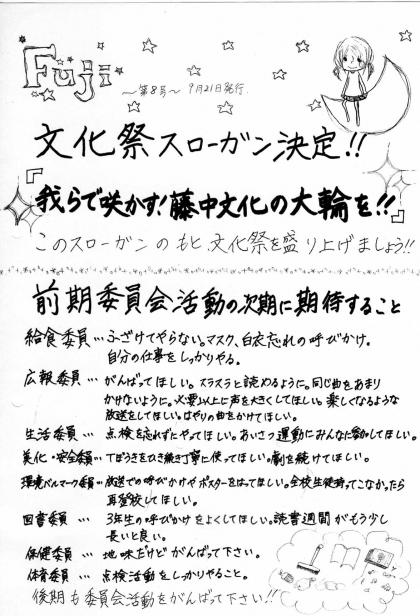 Fuji
～第8号～ 9月21日発行
文化祭スローガン決定!!
『我らで咲かす!藤中文化の大輪を!!』
このスローガンのもと文化祭を盛り上げましょう!!
前期委員会活動の次期に期待すること
給食委員…ふざけてやらない。マスク、白衣忘れの呼びかけ。
自分の仕事をしっかりやる。
広報委員…がんばってほしい。スラスラと読めるように。同じ曲をあまり
かけないように。必要以上に声を大きくしてほしい。楽しくなるような
放送をしてほしい。はやりの曲をかけてほしい。
生活委員…点検を忘れずにやってほしい。あいさつ運動にみんなに参加してほしい。
美化・安全委員…T ぼうきをひき続き丁寧に使ってほしい。劇を続けてほしい。
環境ベルマーク委員…放送での呼びかけやポスターをはってほしい。全校生徒持ってこなかったら
再登校してほしい。
図書委員…3年生の呼びかけをよくしてほしい。読書週間がもう少し
長いと良い。
保健委員…地味だけどがんばって下さい。
体育委員…点検活動をしっかりやること。
後期も委員会活動をがんばって下さい!!